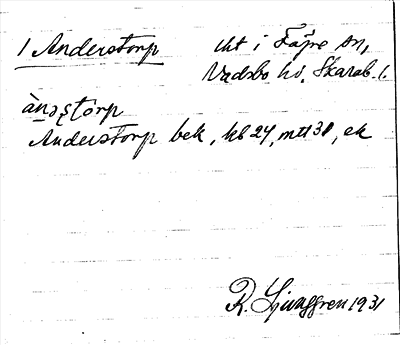 1 Anderstorp
utt i Fägre sn,
Vadsbo hd, Skarab. l.
ànǝʂtòrp
Anderstorp bek, kb 24, mtl 38, ek
R. Ljunggren 1931